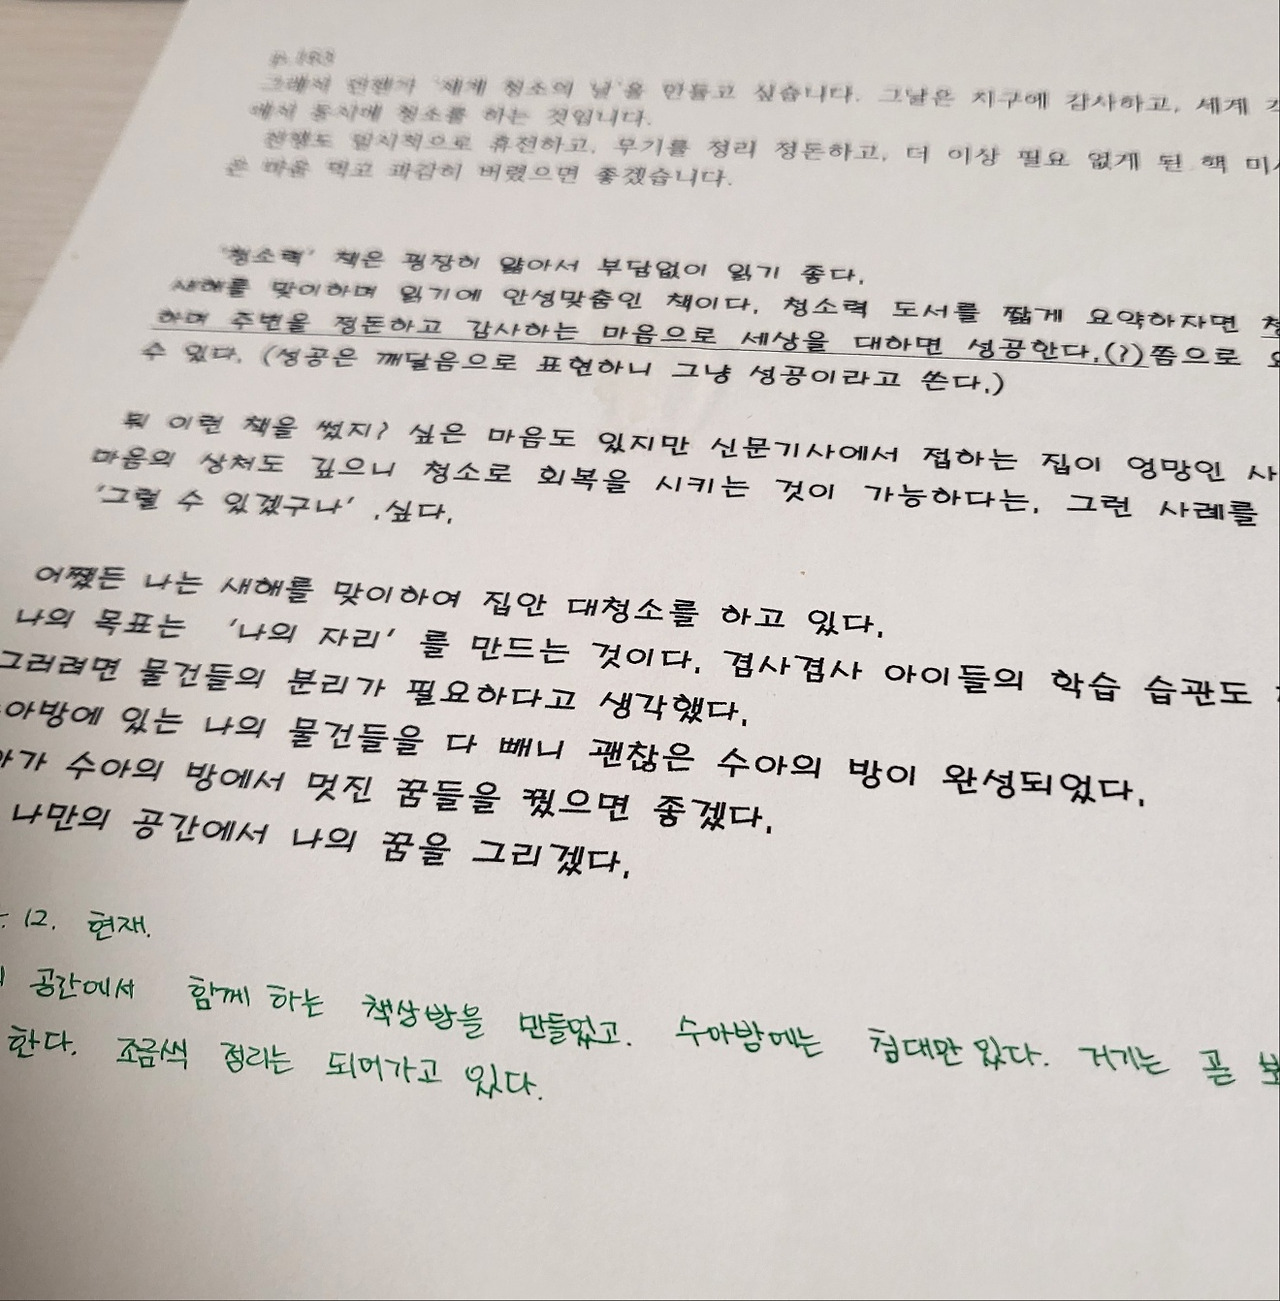 p.183
그래서 언젠가 '세계 청소의 날'을 만들고 싶습니다. 그날은 지구에 감사하고, 세계
에서 동시에 청소를 하는 것입니다.
전쟁도 일시적으로 휴전하고, 무기를 정리 정돈하고, 더 이상 필요 없게 된 핵
은 마음 먹고 과감히 버렸으면 좋겠습니다.
'청소력' 책은 굉장히 얇아서 부담없이 읽기 좋다.
새해를 맞이하며 읽기에 안성맞춤인 책이다. 청소력 도서를 짧게 요약하자면
하며 주변을 정돈하고 감사하는 마음으로 세상을 대하면 성공한다.(?)쯤으로
수 있다. (성공은 깨달음으로 표현하니 그냥 성공이라고 쓴다.)
뭐 이런 책을 썼지? 싶은 마음도 있지만 신문기사에서 접하는 집이 엉망인
마음의 상처도 깊으니 청소로 회복을 시키는 것이 가능하다는, 그런 사례를
'그럴 수 있겠구나' .싶다.
어쨌든 나는 새해를 맞이하여 집안 대청소를 하고 있다.
나의 목표는 '나의 자리' 를 만드는 것이다. 겸사겸사 아이들의 학습 습관도
그러려면 물건들의 분리가 필요하다고 생각했다.
아방에 있는 나의 물건들을 다 빼니 괜찮은 수아의 방이 완성되었다.
가 수아의 방에서 멋진 꿈들을 꿨으면 좋겠다.
나만의 공간에서 나의 꿈을 그리겠다.
12. 현재.
공간에서 함께 하는 책상방을 만들었고. 수아방에는 침대만 있다. 거기는 곧
한다. 조금씩 정리는 되어가고 있다.